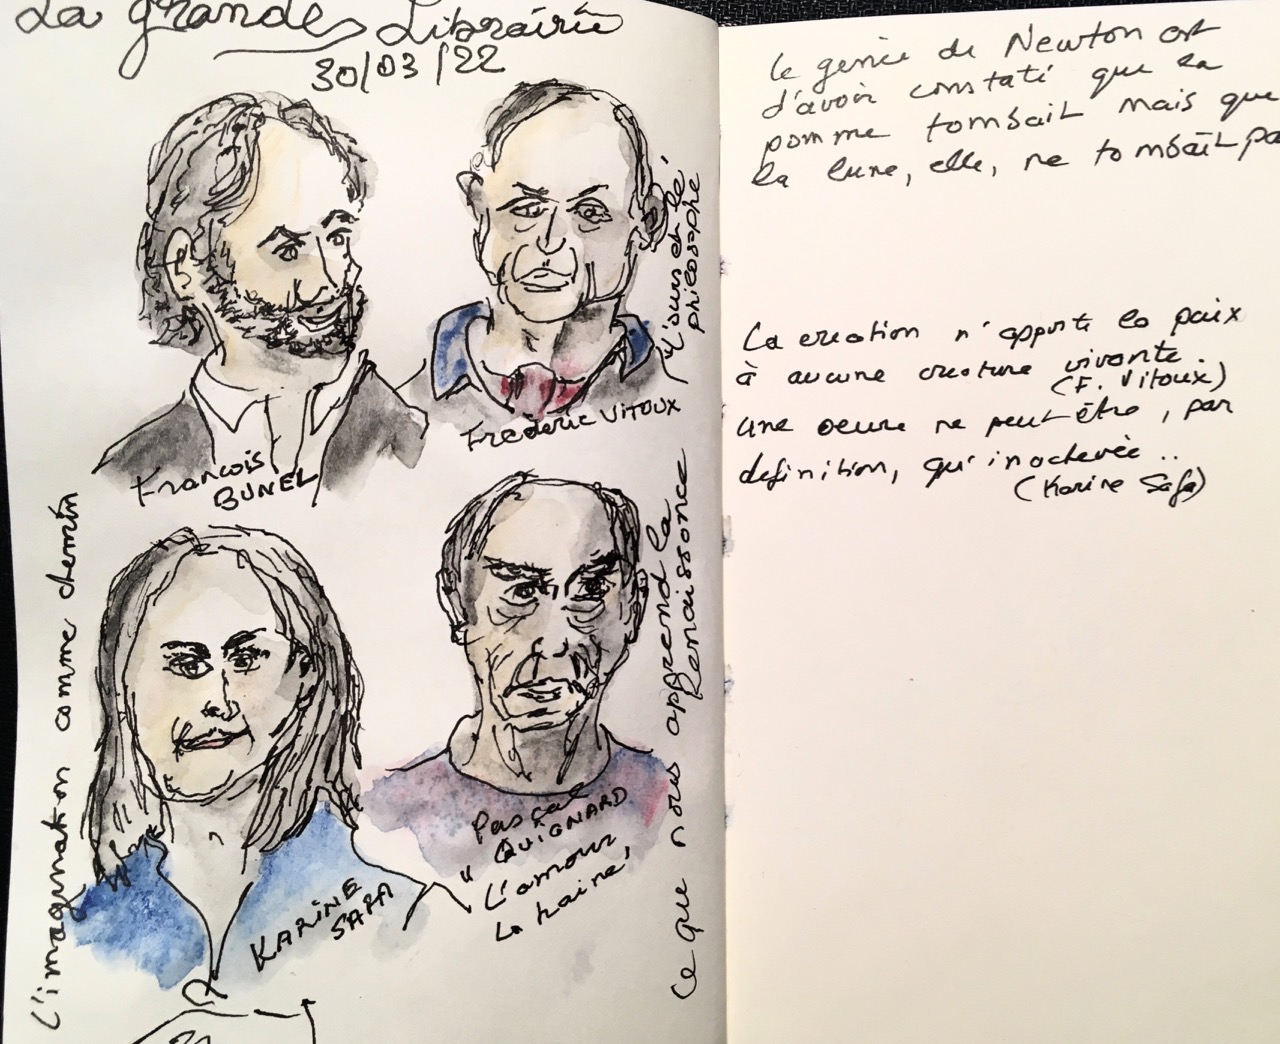 La grande Librairie
30/03/22
François
BUNEL
Frédéric VITOUX
"L'ours et le
philosophe
L'imagination comme chemin
KARINE
SAFA
Pascal
QUIGNARD
"L'amour
La haine"
Ce que nous apprend la
Renaissance
Le génie de Newton est
d'avoir constaté que la
pomme tombait mais que
la lune, elle, ne tombait pa
La creation n'apporte la paix
à aucune creature vivante.
(F. Vitoux)
une oeuvre ne peut être, par
definition, qu'inachevée..
(Karine Safa)